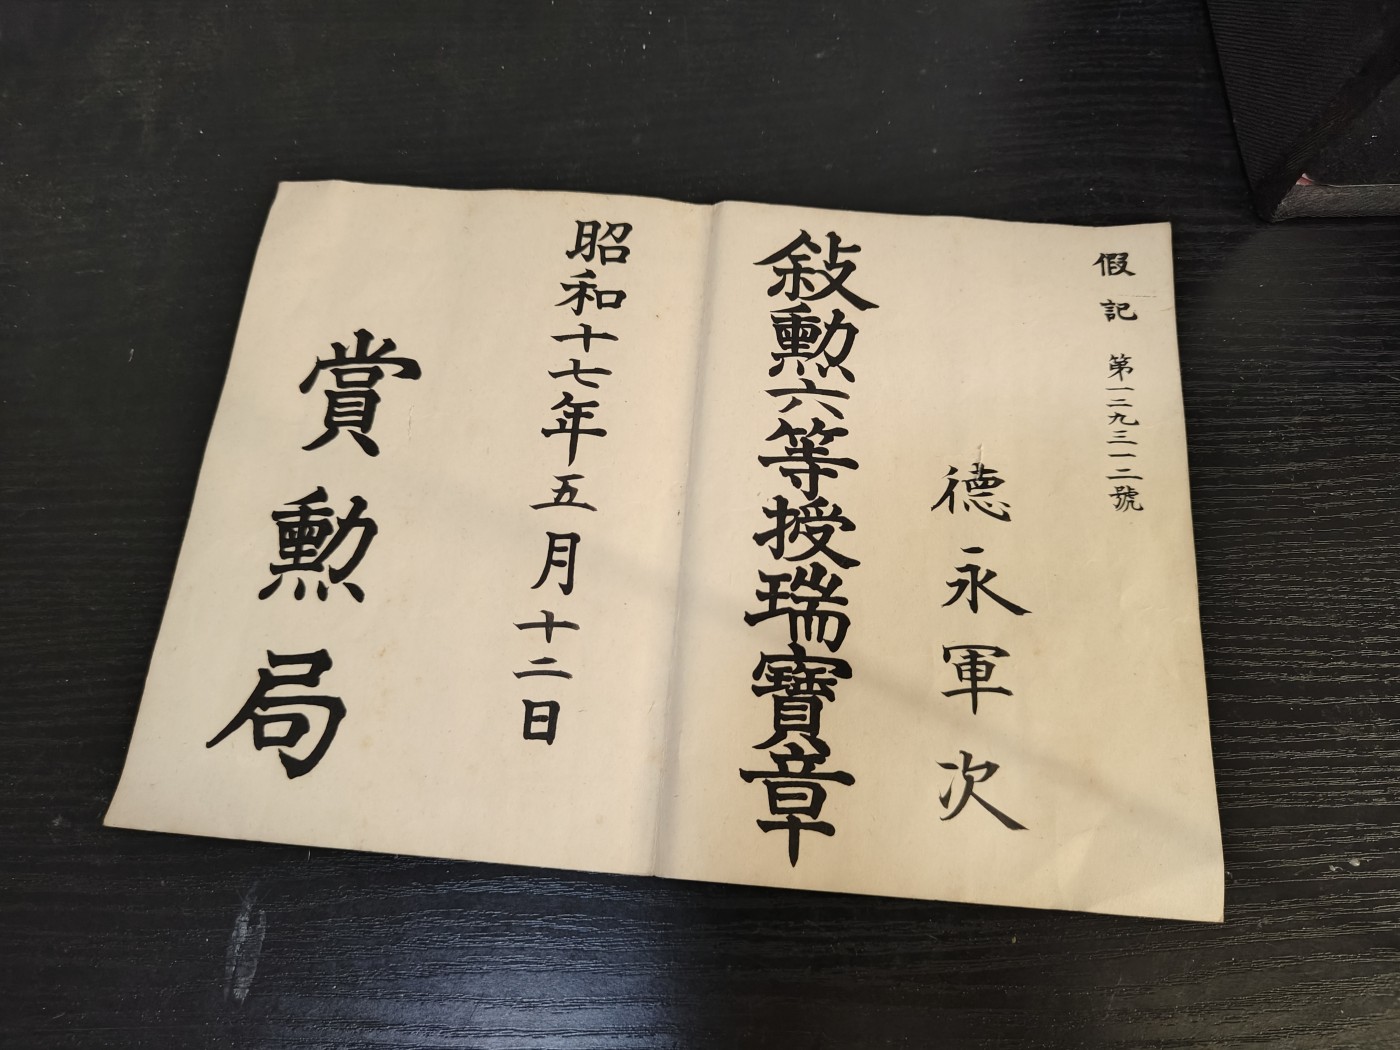 假記 第一二九三一二號
德永軍次
敍勲六等授瑞寶章
昭和十七年五月十二日
賞勲局